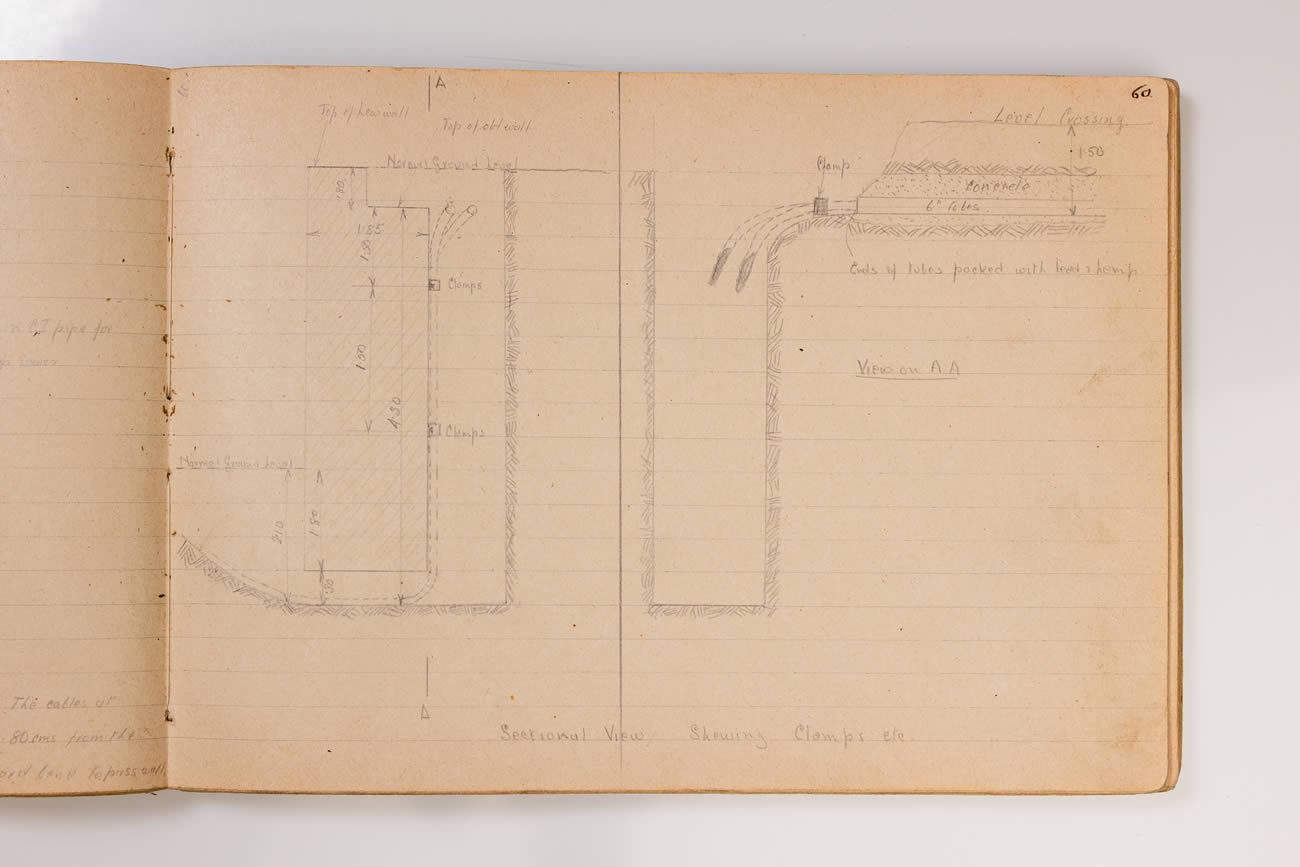 60.
A
Top of new wall
Top of old wall
Normal Ground Level
.80
1.85
1.50
Clamps
1.50
4.30
Clamps
Normal Ground Level
210
1.80
.30
A
Level Crossing
1.50
Clamp
Concrete
6" tubes
Ends of tubes packed with lead & hemp
View on A.A
Sectional View Shewing Clamps etc.
CI pipe for
The cables at
80 cms from the